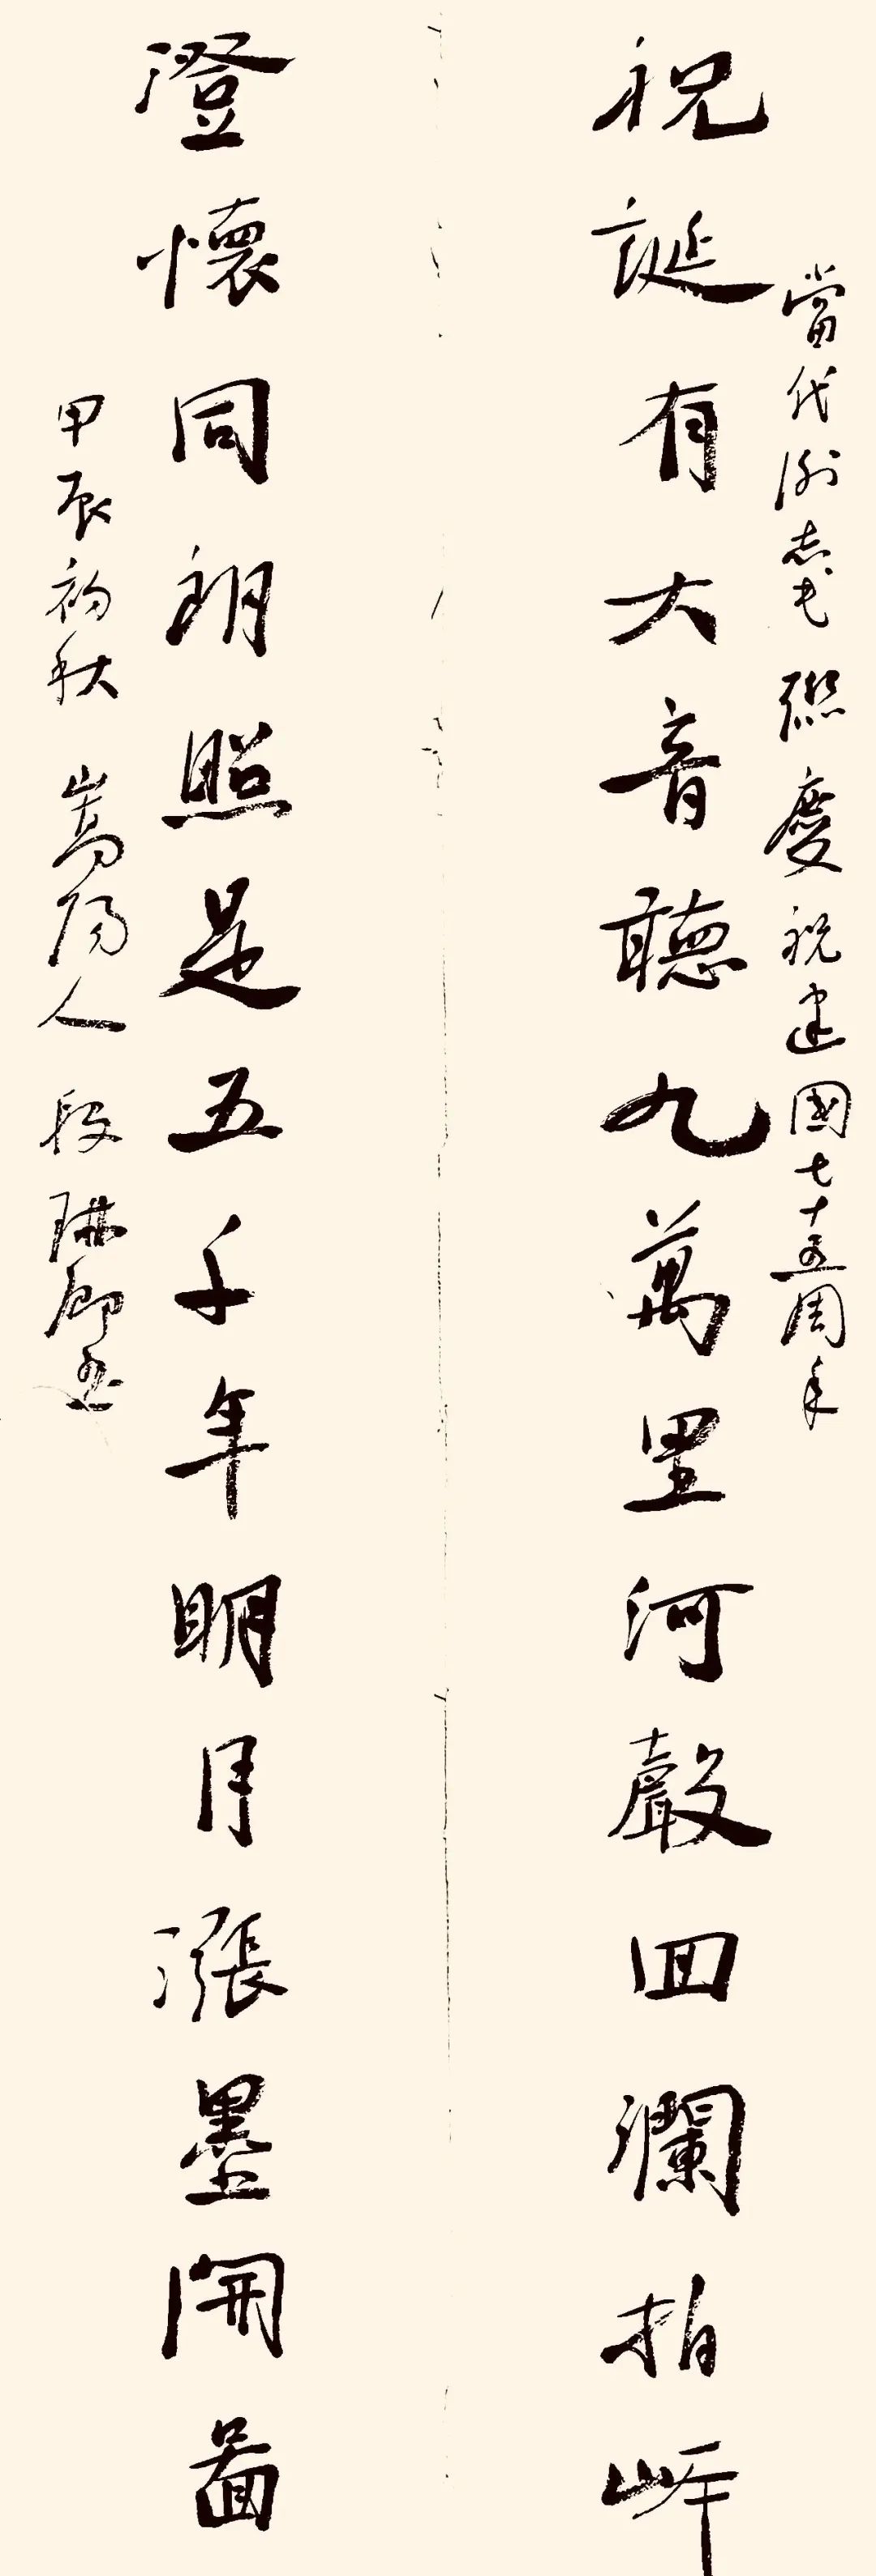 當代謝志聯慶祝建國七十五周年
祝誕有大音聽九萬里河聲回瀾拍岸
澄懷同朗照是五千年明月漲墨開圖
甲辰初秋 嵩陽人 段琳書